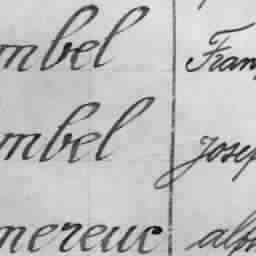 mbel Fran
mbel Josep
mereuc alph